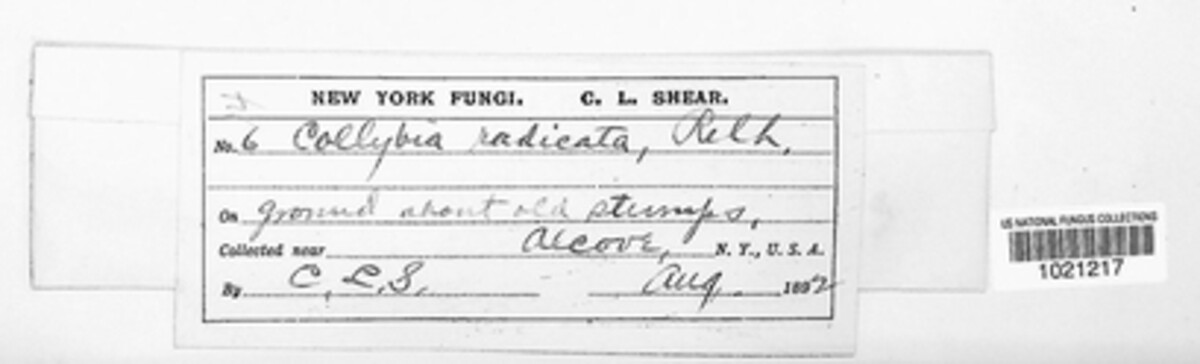 NEW YORK FUNGI. C. L. SHEAR.
No. 6 Collybia radicata, Relh.
On ground about old stumps,
Collected near Alcove, N. Y., U. S. A.
By C. L. S. Aug. 1892
US NATIONAL FUNGUS COLLECTIONS
1021217